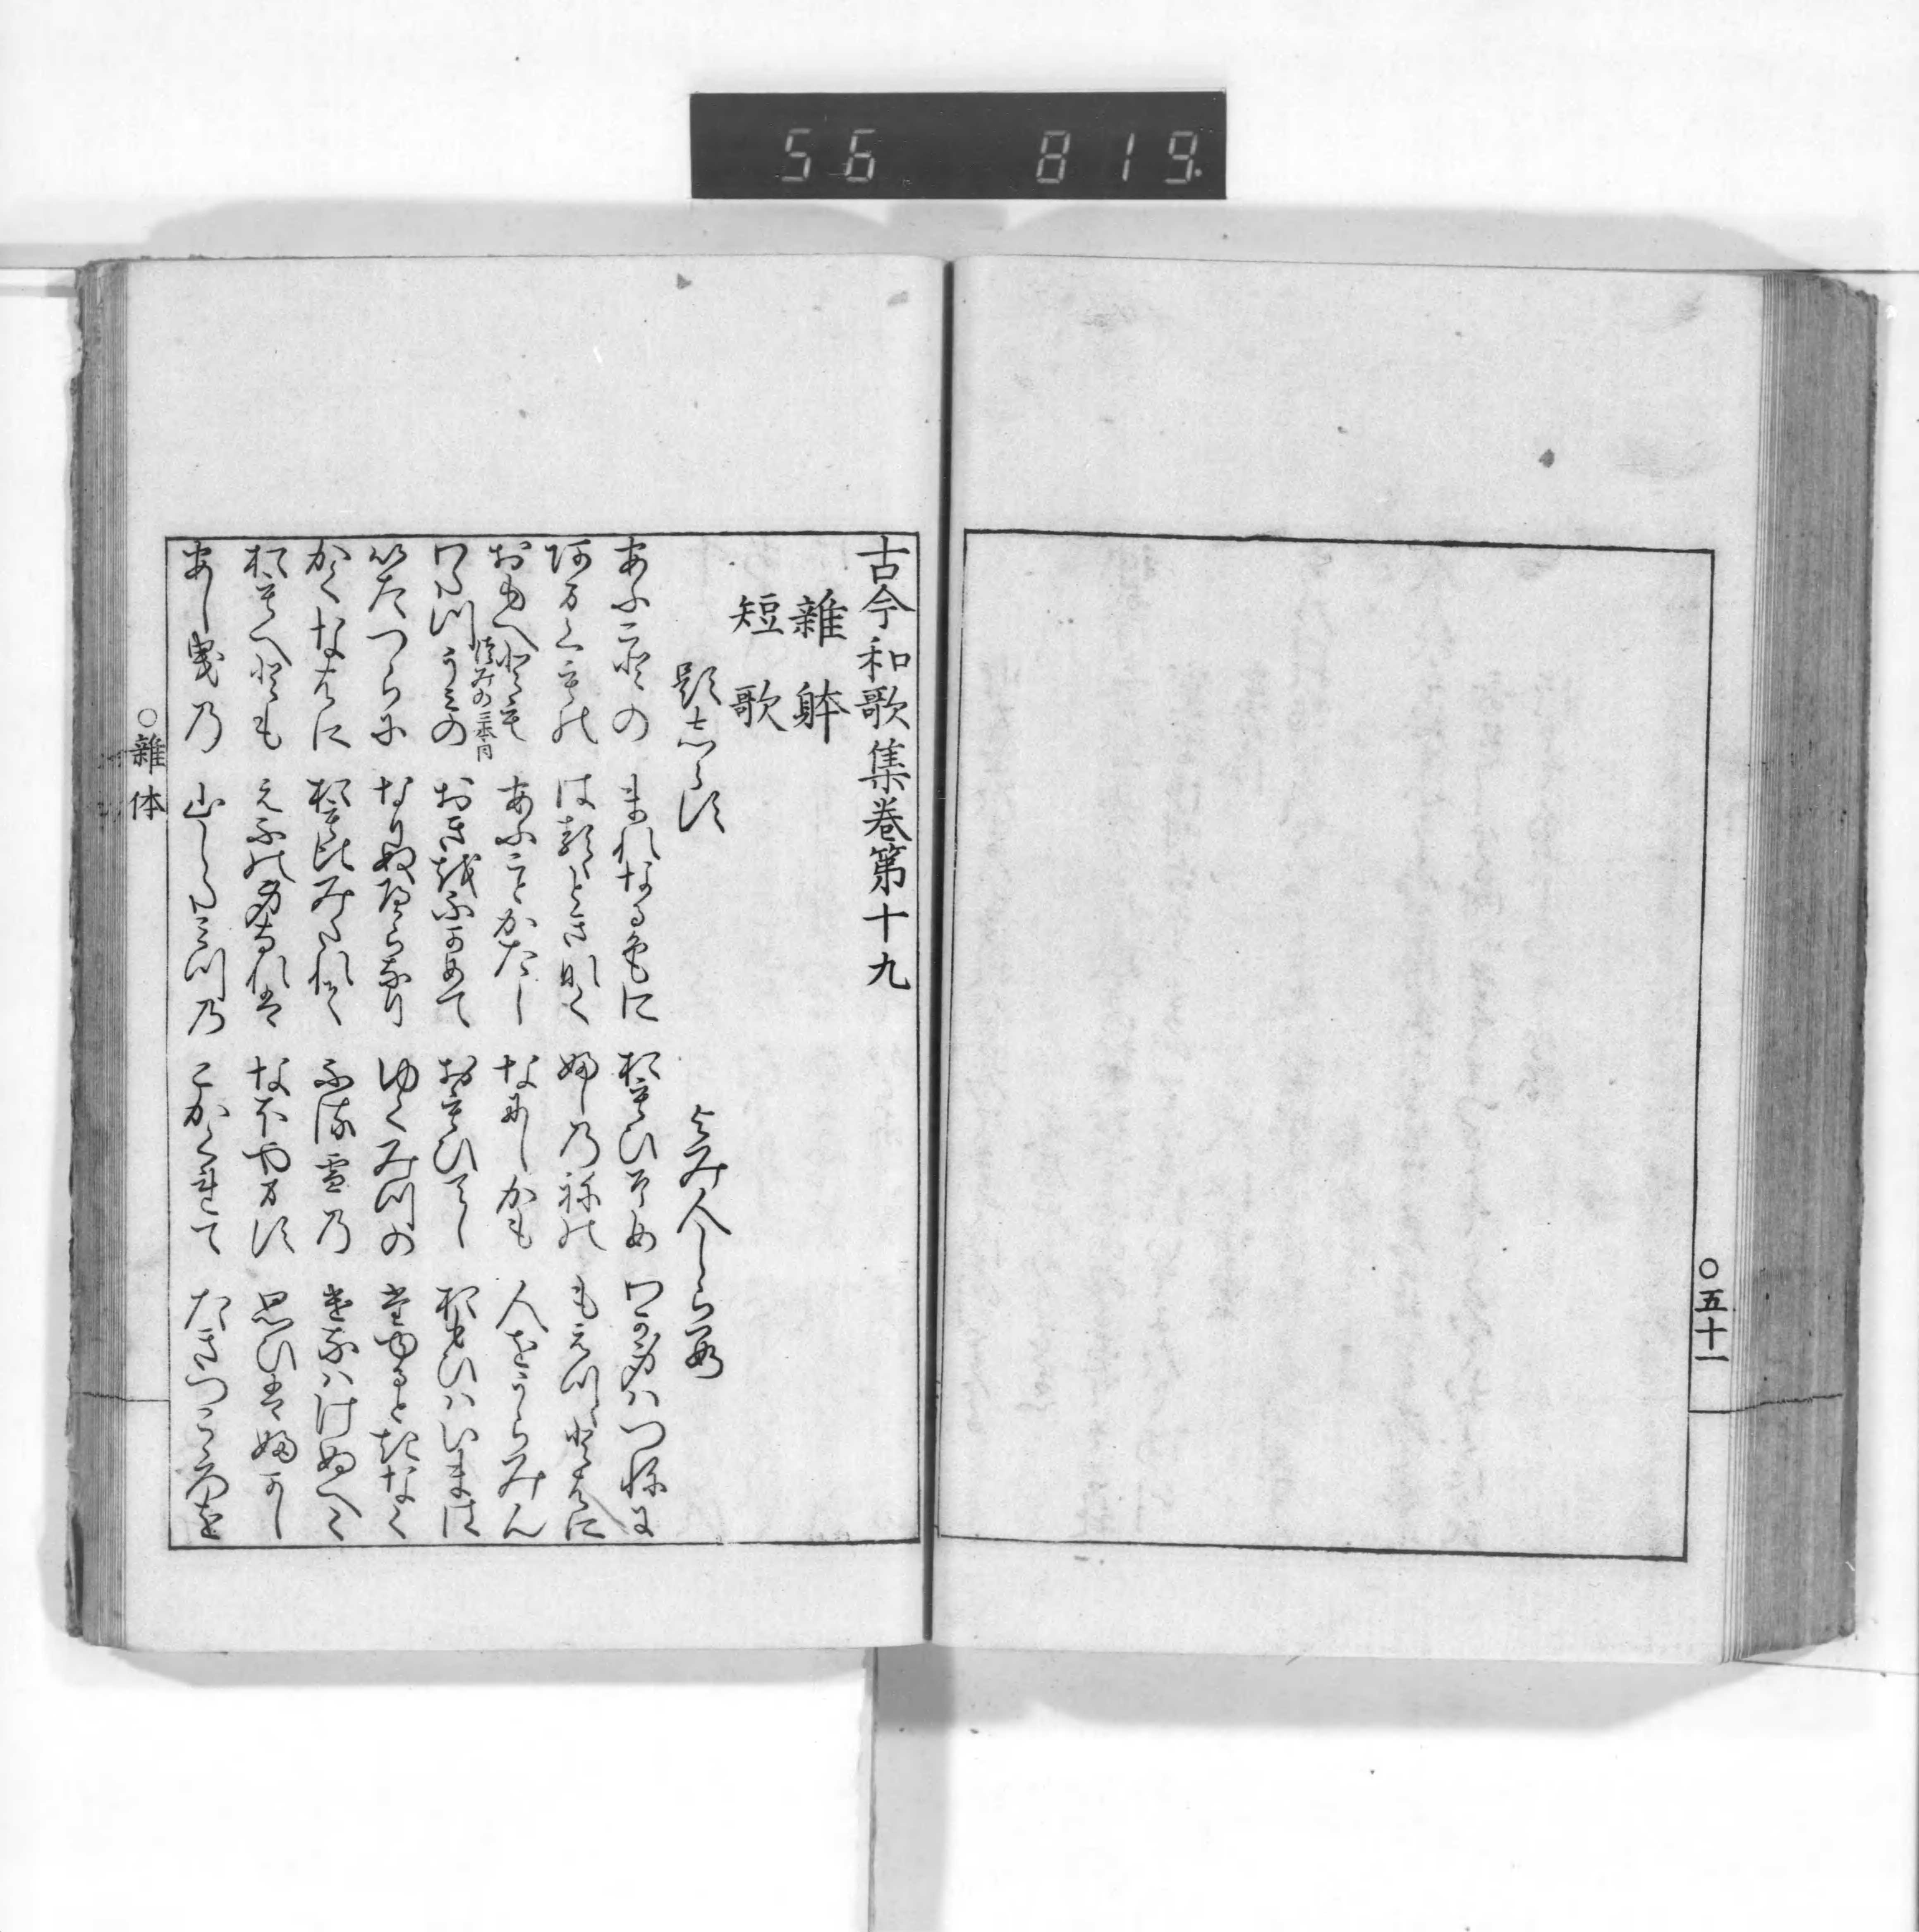 56 819
○五十一
古今和歌集巻第十九
雑躰
短歌
題しらす
よみ人しらす
あふことの まれなる色に おもひそめ わか身ハつねに
あまくもの はるゝときなく ふしのねの もえつゝとはに
おもへとも あふことかたし なにしかも 人をうらみん
つみの三本同
わたつうみの おきをふかめて おもひてし おもひハいまは
いたつらに なりぬへらなり ゆくみつの たゆるときなく
かくなはに おもひみたれて ふる雪の けなハけぬへく
おもへとも えふの身なれは なほやます 思ひはふかし
あし曳の 山したみつの こかくれて たきつこゝろを
○雑体